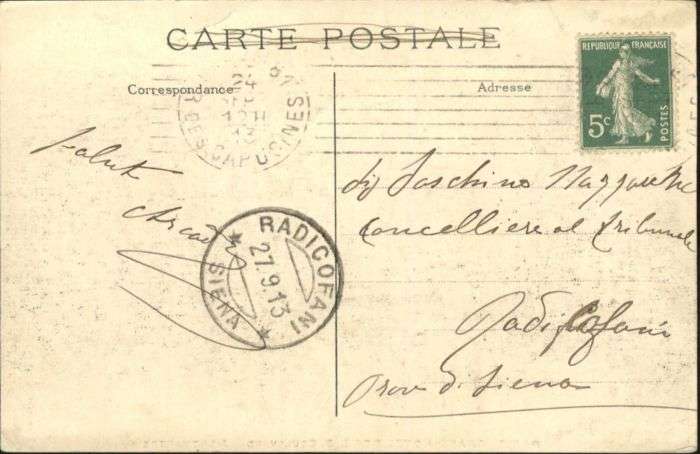 CARTE POSTALE
Correspondance
Adresse
RÉPUBLIQUE FRANÇAISE
5c
POSTES
R. DES CAPUCINES
RADICOFANI
27.9.13
* SIENA *
Saluti
Sig
Cancelliere al Tribunale
Radicofani
Prov. di Siena